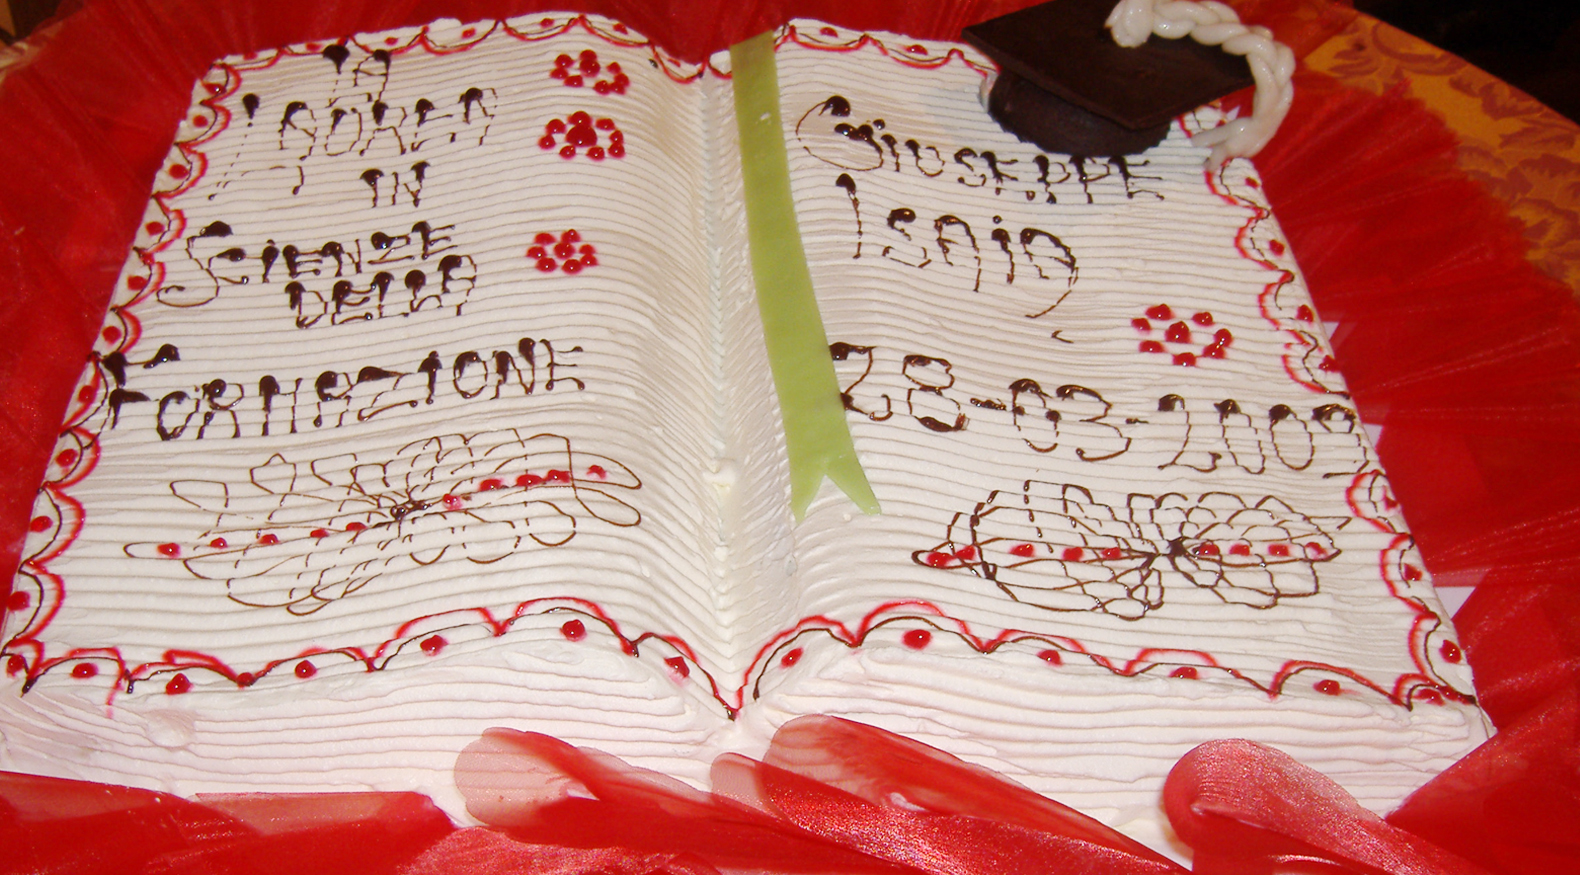 LA
LAUREA
IN
SCIENZE
DELLA
FORMAZIONE
GIUSEPPE
ISAIA
28-03-2009